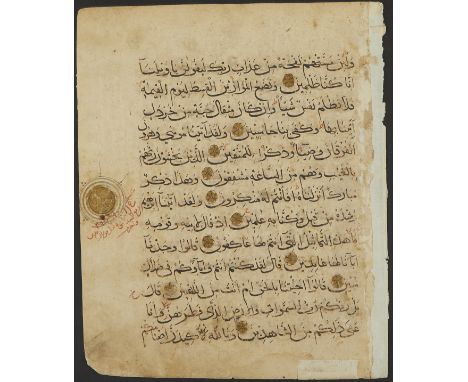 ولئن مستهم نفحة من عذاب ربك ليقولن يا ويلنا
انا كنا ظلمين ونضع الموازين القسط ليوم القيمة
فلا تظلم نفس شيئا وان كان مثقال حبة من خردل
اتينا بها وكفى بنا حاسبين ولقد اتينا موسى وهرون
الفرقان وضيا وذكرا للمتقين الذين يخشون ربهم
بالغيب وهم من الساعة مشفقون وهذا ذكر
مبارك انزلناه افانتم له منكرون ولقد اتينا ابرهيم
رشده من قبل وكنا به علمين اذ قال لابيه وقومه
ما هذه التماثيل التي انتم لها عاكفون قالوا وجدنا
اباانا لها عابدين قال لقد كنتم انتم واباؤكم في ضلال
مبين قالوا اجئتنا بالحق ام انت من اللعبين قال
بل ربكم رب السموات والارض الذي فطرهن وانا
على ذلكم من الشاهدين وتالله لاكيدن اصنامكم